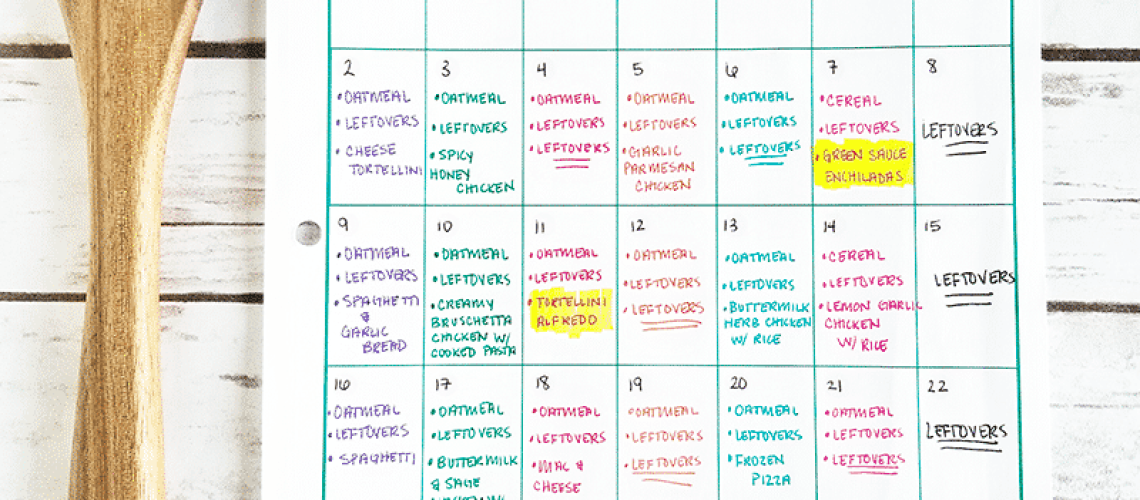 2
• OATMEAL
• LEFTOVERS
• CHEESE
TORTELLINI
3
• OATMEAL
• LEFTOVERS
• SPICY
HONEY
CHICKEN
4
• OATMEAL
• LEFTOVERS
• LEFTOVERS
5
• OATMEAL
• LEFTOVERS
• GARLIC
PARMESAN
CHICKEN
6
• OATMEAL
• LEFTOVERS
• LEFTOVERS
7
• CEREAL
• LEFTOVERS
• GREEN SAUCE
ENCHILADAS
8
LEFTOVERS
9
• OATMEAL
• LEFTOVERS
• SPAGHETTI
&
GARLIC
BREAD
10
• OATMEAL
• LEFTOVERS
• CREAMY
BRUSCHETTA
CHICKEN W/
COOKED PASTA
11
• OATMEAL
• LEFTOVERS
• TORTELLINI
ALFREDO
12
• OATMEAL
• LEFTOVERS
• LEFTOVERS
13
• OATMEAL
• LEFTOVERS
• BUTTERMILK
HERB CHICKEN
W/ RICE
14
• CEREAL
• LEFTOVERS
• LEMON GARLIC
CHICKEN
W/ RICE
15
LEFTOVERS
16
• OATMEAL
• LEFTOVERS
• SPAGHETTI
17
• OATMEAL
• LEFTOVERS
• BUTTERMILK
& SAGE
18
• OATMEAL
• LEFTOVERS
• MAC &
CHEESE
19
• OATMEAL
• LEFTOVERS
• LEFTOVERS
20
• OATMEAL
• LEFTOVERS
• FROZEN
PIZZA
21
• OATMEAL
• LEFTOVERS
• LEFTOVERS
22
LEFTOVERS